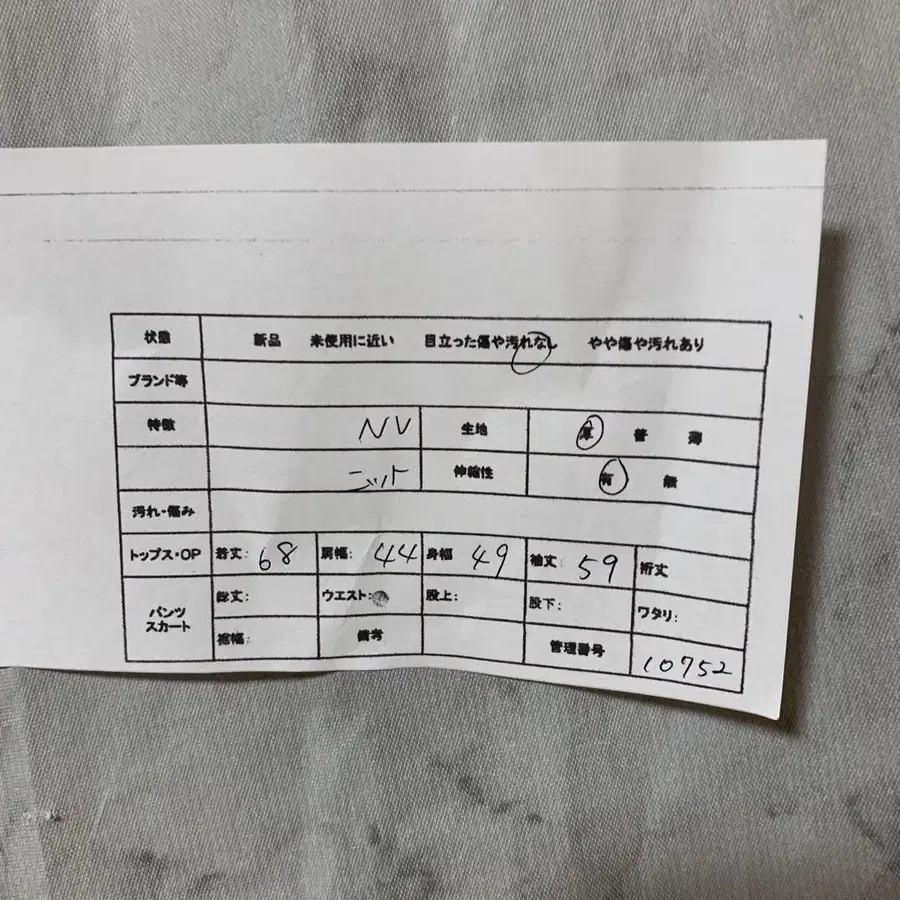 状態 新品 未使用に近い 目立った傷や汚れなし やや傷や汚れあり
ブランド等
特徴 NV 生地 厚 普 薄
ニット 伸縮性 有 無
汚れ・傷み
トップス・OP 着丈: 68 肩幅: 44 身幅 49 袖丈: 59 裄丈
パンツ スカート 総丈: ウエスト: 股上: 股下: ワタリ:
裾幅: 備考 管理番号 10752